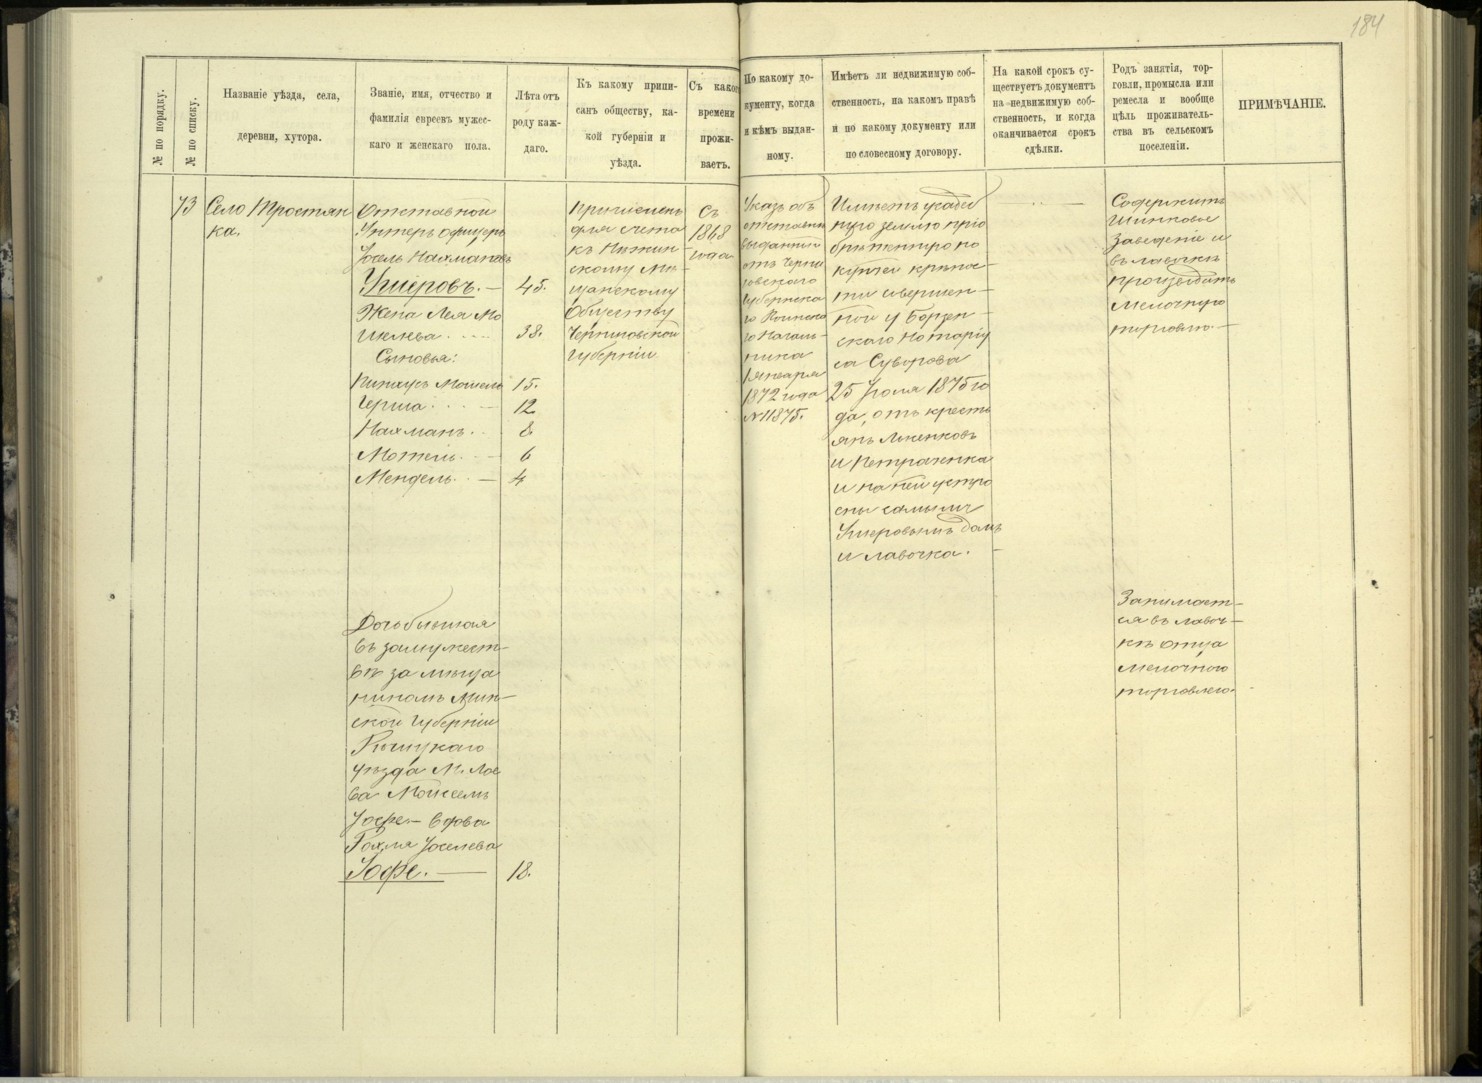 184
№ по порядку.
№ по списку.
Названіе уѣзда, села,
деревни, хутора.
Званіе, имя, отчество и
фамилія евреевъ мужес-
каго и женскаго пола.
Лѣта отъ
роду каж-
даго.
Къ какому припи-
санъ обществу, ка-
кой губерніи и
уѣзда.
Съ какого
времени
прожи-
ваетъ.
По какому до-
кументу, когда
и кѣмъ выдан-
ному.
Имѣетъ ли недвижимую соб-
ственность, на какомъ правѣ
и по какому документу или
по словесному договору.
На какой срокъ су-
ществуетъ документъ
на недвижимую соб-
ственность, и когда
оканчивается срокъ
сдѣлки.
Родъ занятія, тор-
говли, промысла или
ремесла и вообще
цѣль проживатель-
ства въ сельскомъ
поселеніи.
ПРИМѢЧАНІЕ.
73
Село Тростян
ка.
Отставной
Унтеръ офицеръ
Іосель Нахмановъ
Умеровъ. — 45.
Жена Лея Мо
шкева 38.
Сыновья:
Пинхусъ Мошель 15.
Герша — 12
Нахманъ. 8.
Мотель. 6
Мендель — 4
Причисленъ
для счета
къ Нѣжин-
скому Мѣ-
щанскому
Обществу
Черниговской
Губерніи
Съ
1868
года
Указъ объ
отставкѣ
выданный
отъ Черни
говскаго
Губернска
го Воинска
го Началь-
ника
Января
1872 года
№11875.
Имѣетъ усадеб
ную землю пріо
брѣтенную по
купчей крѣпос-
ти совершен-
ной у Борзен-
скаго Нотаріу
са Суворова
25 Іюля 1875 го
да, отъ кресть
янъ
и Петраченка
и на ней устро
ены самымъ
Умеровымъ домъ
и лавочка. —
Содержитъ
Шинковое
Заведеніе и
въ лавочкѣ
производитъ
мелочную
торговлю —
Дочь бывшая
въ замужест-
вѣ за мѣща
ниномъ Мин-
ской Губерніи
Рѣчицкаго
уѣзда М. Лое
ва Мойсеемъ
Іофе — вдова
Рохля Іоселева
Іофе. — 18.
Занимает-
ся въ лавоч-
кѣ отца
мелочною
торговлею.